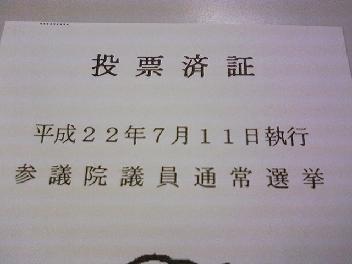 投票済証
平成２２年７月１１日執行
参議院議員通常選挙